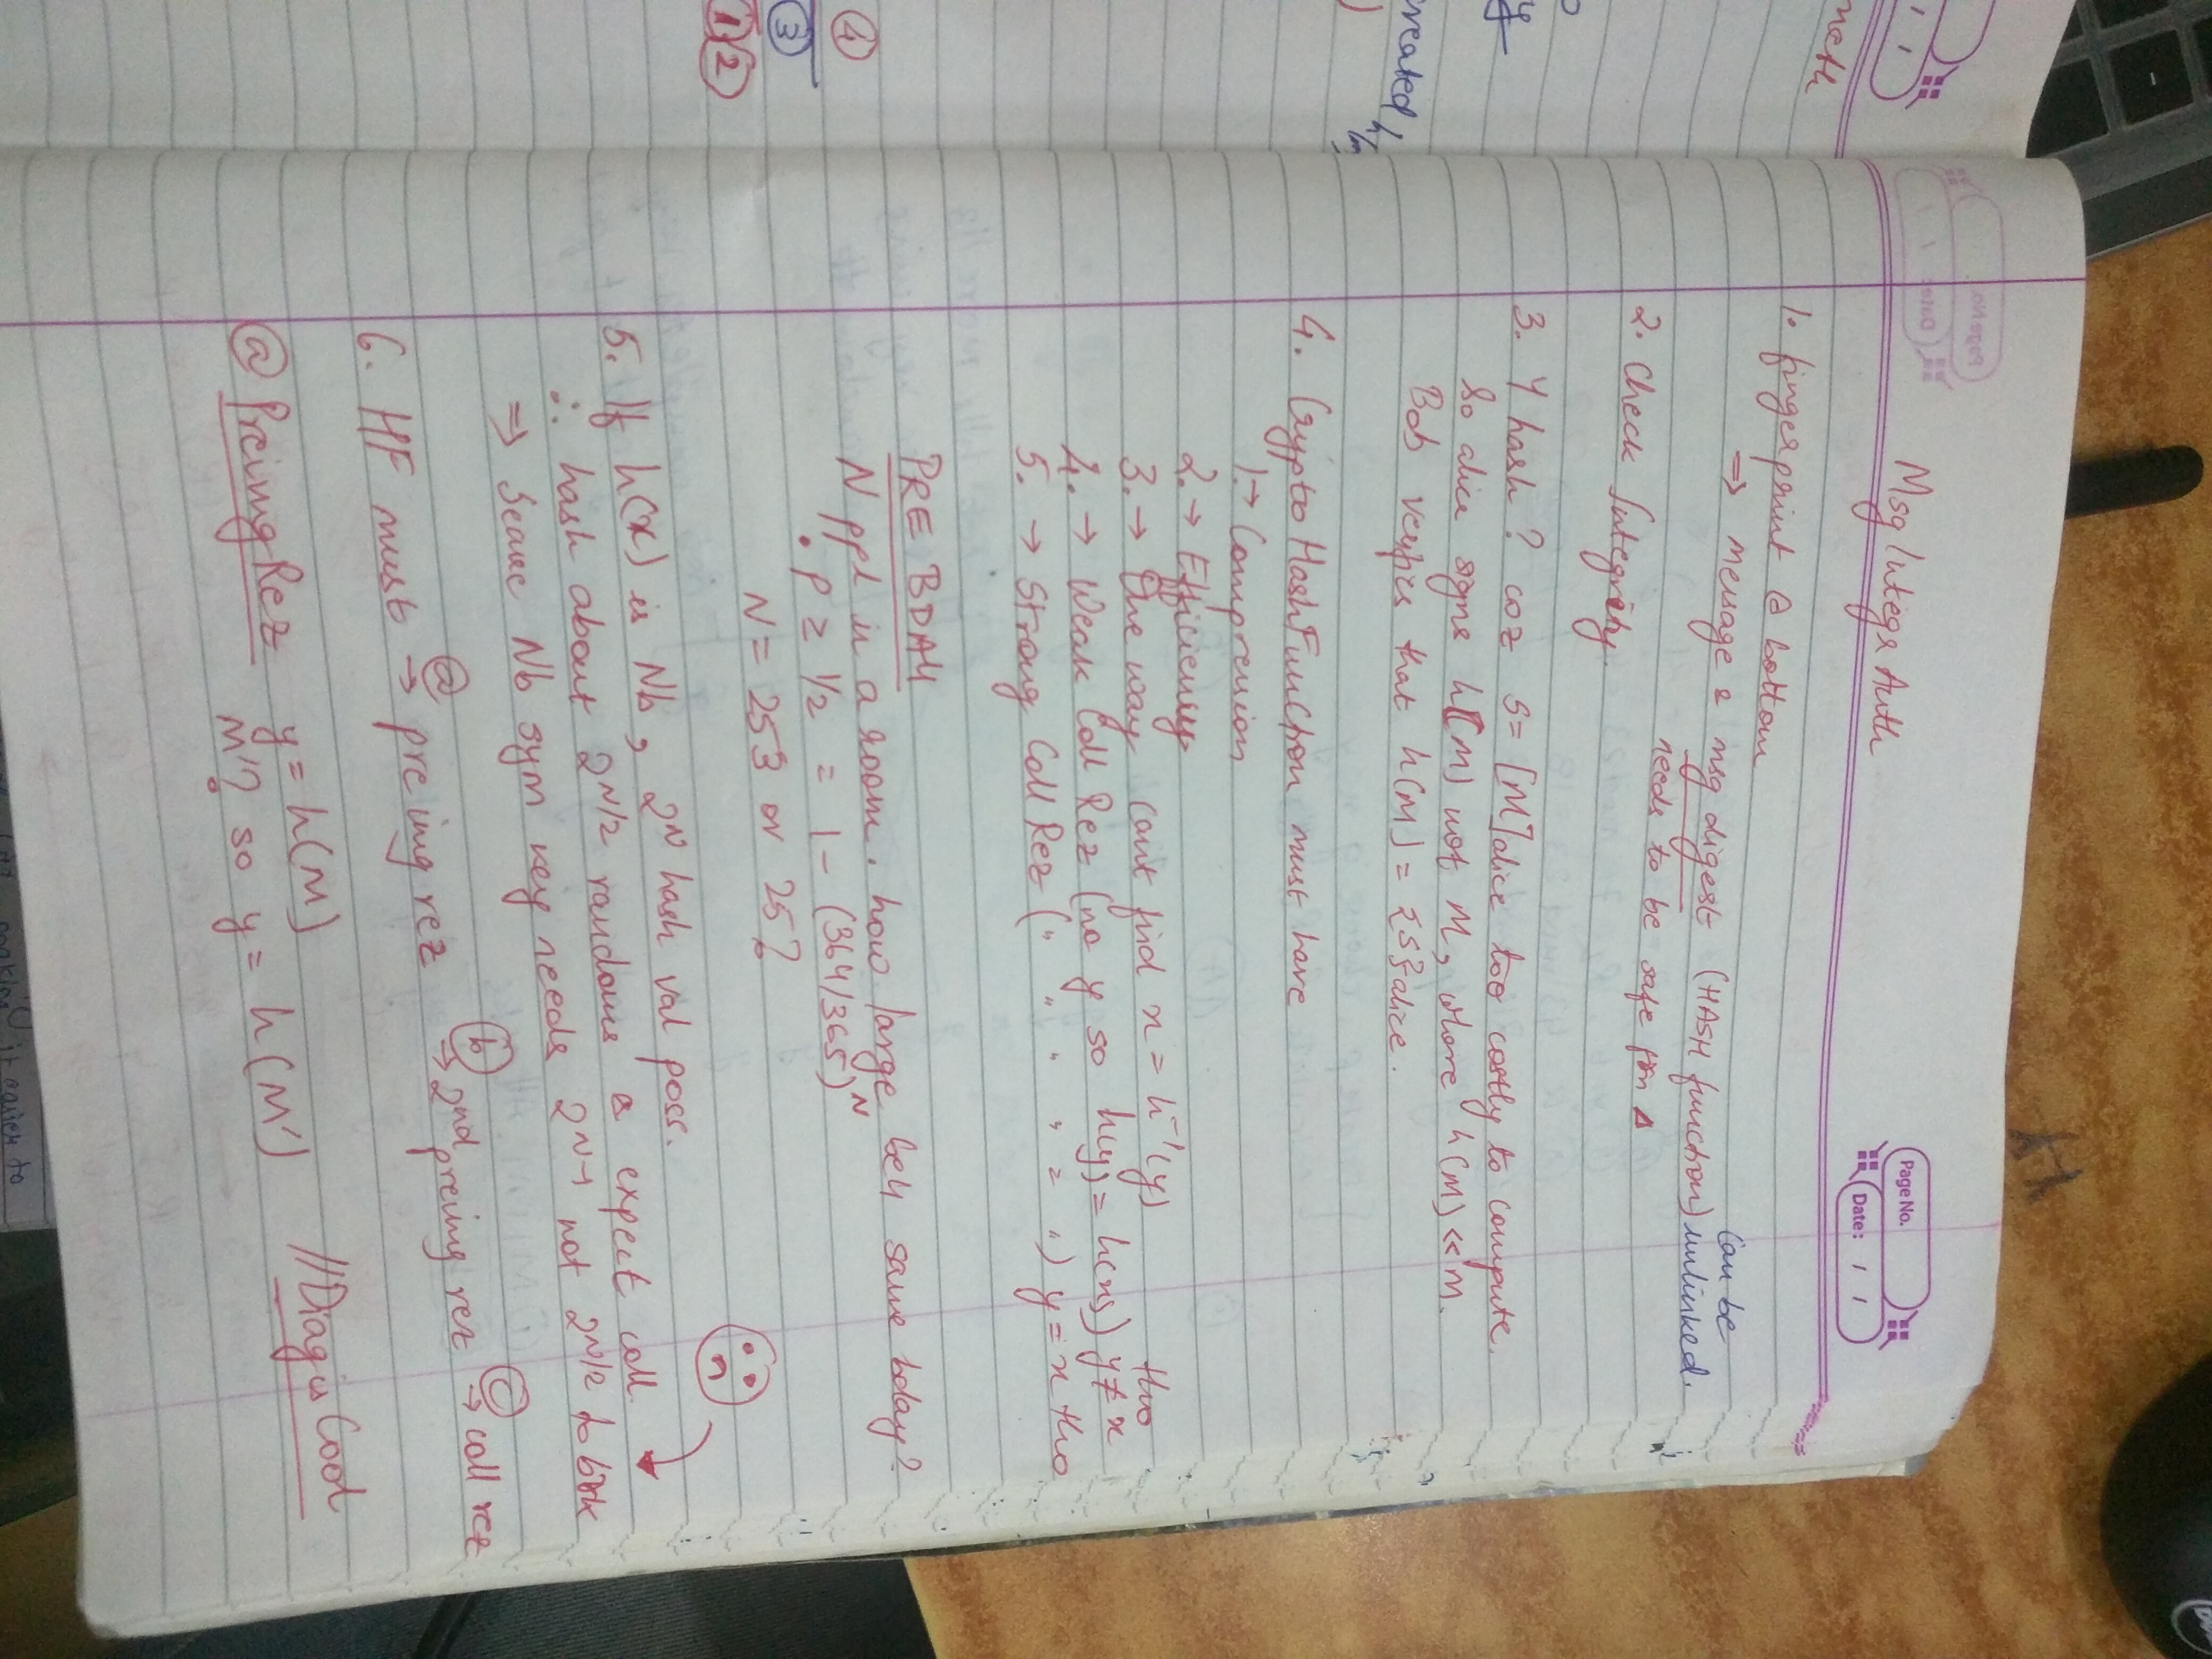 Page No.
Date: / /
Msg Integr Auth
1. fingerprint @ bottom
Can be
⇒ message & msg digest (HASH function) unlinked.
needs to be safe frm Δ
2. Check Integrity.
3. Y hash? coz S = [M]alice too costly to compute.
So alice signs h(M) not M, where h(M) << M.
Bob verifies that h(M) = {S}alice.
4. Crypto HashFunction must have
1. → Compression
2. → Efficiency
3. → One way can't find x = h⁻¹(y)
4. → Weak Coll Rez (no y so h(y) = h(x)) y ≠ x tho
5. → Strong Coll Rez ( " " " " = " ) y = x tho
PRE BDAY
N ppl in a room, how large be4 same bday?
• P ≥ 1/2 = 1 - (364/365)ᴺ
N = 253 or 25?
5. If h(x) is Nb, 2ᴺ hash val poss.
∴ hash about 2ᴺ/² randoms & expect coll
⇒ Seanc Nb sym key needs 2ᴺ⁻¹ not 2ᴺ/² to brk
6. HF must → ⓐ preimg rez ⓑ → 2nd preimg rez ⓒ → coll rez
ⓐ PreimgRez y = h(M) // Diag is Cool
M'? so y = h(M')